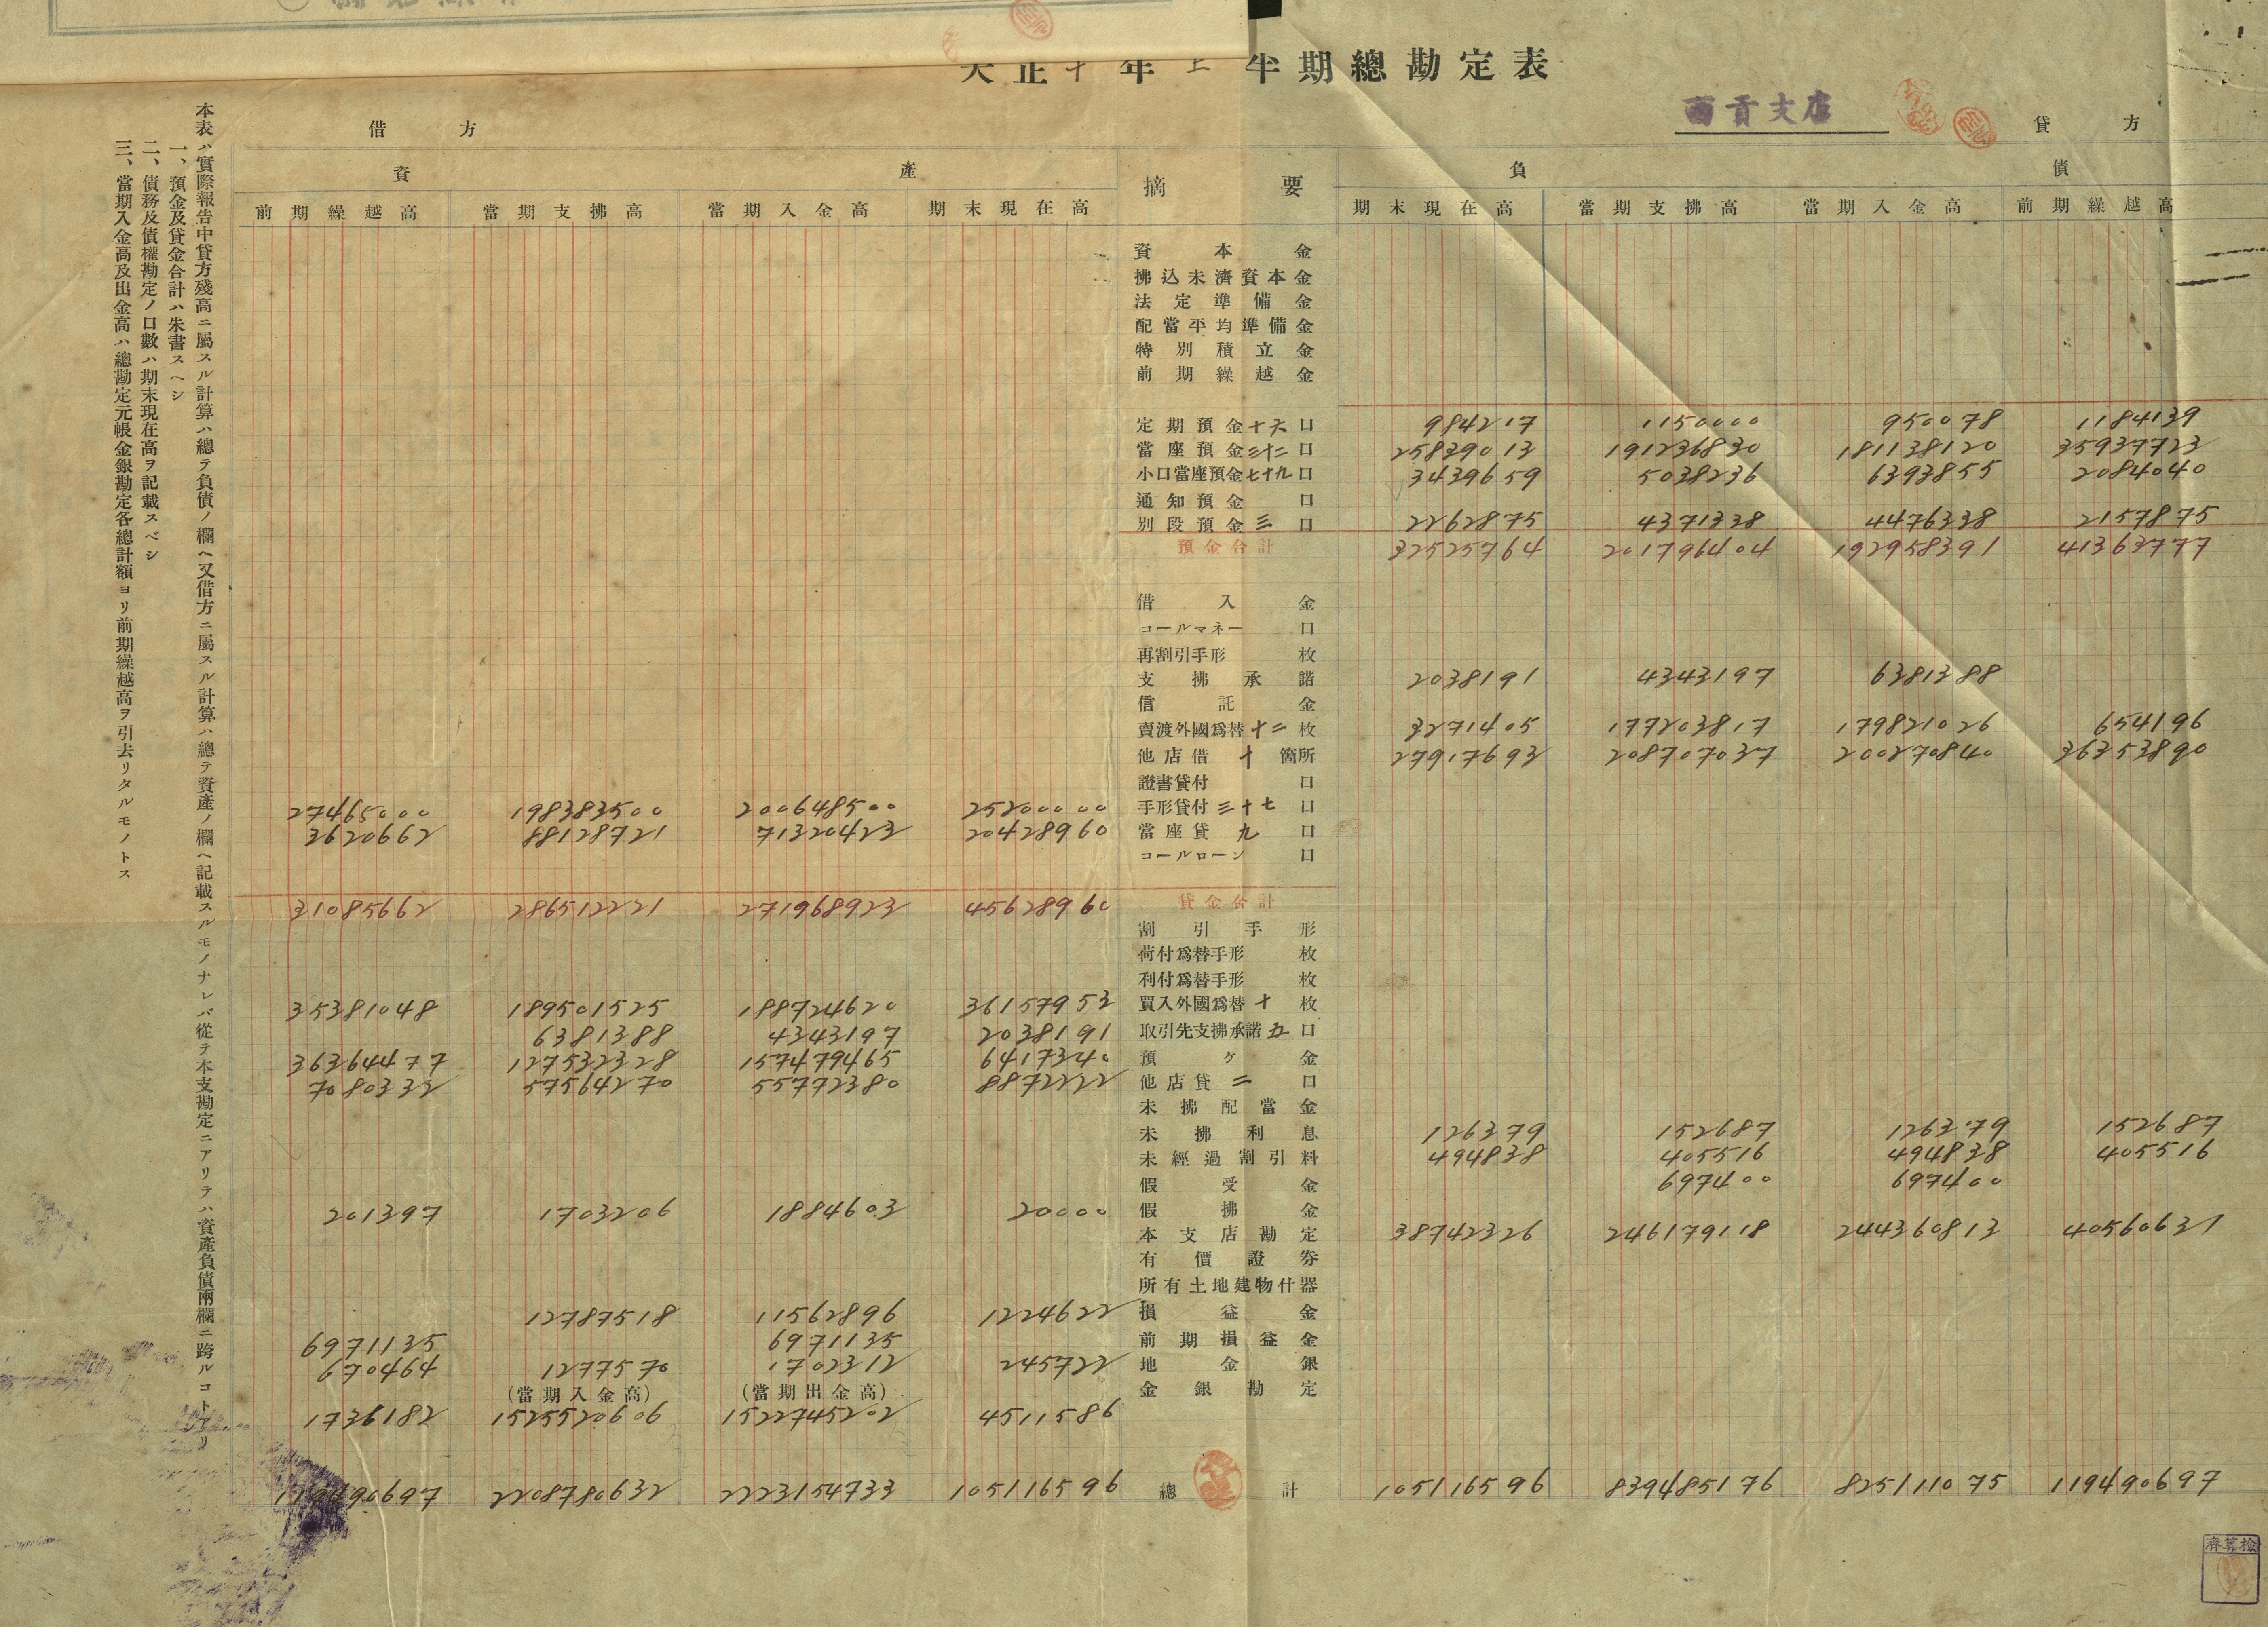 大正十年上半期總勘定表
西貢支店
借方
貸方
資產
摘要
負債
前期繰越高 當期支拂高 當期入金高 期末現在高 期末現在高 當期支拂高 當期入金高 前期繰越高
資本金
拂込未濟資本金
法定準備金
配當平均準備金
特別積立金
前期繰越金
定期預金十六口 984217 1150000 950078 1184139
當座預金三十二口 25839013 191236830 181138120 35937723
小口當座預金七十九口 3439659 5038236 6393855 2084040
通知預金口
別段預金三口 2262875 4371338 4476338 2157875
預金合計 32525764 201796404 192958391 41363777
借入金
コールマネー口
再割引手形枚
支拂承諾 2038191 4343197 6381388
信託金
賣渡外國爲替十二枚 3271405 177203817 179821026 654196
他店借十箇所 27917693 208707037 200270840 36353890
證書貸付口
27465000 198383500 200648500 25200000 手形貸付三十七口
3620662 88128721 71320423 20428960 當座貸九口
コールローン口
31085662 286512221 271968923 45628960 貸金合計
割引手形
荷付爲替手形枚
利付爲替手形枚
35381048 189501525 188724620 36157953 買入外國爲替十枚
6381388 4343197 2038191 取引先支拂承諾五口
36364477 127532328 157479465 6417340 預ケ金
7080332 57564270 55772380 8872222 他店貸二口
未拂配當金
未拂利息 126379 152687 126379 152687
未經過割引料 494838 405516 494838 405516
假受金 697400 697400
201397 1703206 1884603 20000 假拂金
本支店勘定 38742326 246179118 244360813 40560631
有價證券
所有土地建物什器
12787518 11562896 1224622 損益金
6971135 6971135 前期損益金
670464 1277570 1702312 245722 地金銀
(當期入金高) (當期出金高) 金銀勘定
1736182 1525520606 1522745202 4511586
119490697 2208780632 2223154733 105116596 總計 105116596 839485176 825111075 119490697
本表ハ實際報告中貸方殘高ニ屬スル計算ハ總テ負債ノ欄ヘ又借方ニ屬スル計算ハ總テ資產ノ欄ヘ記載スルモノナレバ從テ本支勘定ニアリテハ資產負債兩欄ニ跨ルコトアリ
一、預金及貸金合計ハ朱書スヘシ
二、債務及債權勘定ノ口數ハ期末現在高ヲ記載スベシ
三、當期入金高及出金高ハ總勘定元帳金銀勘定各總計額ヨリ前期繰越高ヲ引去リタルモノトス
檢算濟